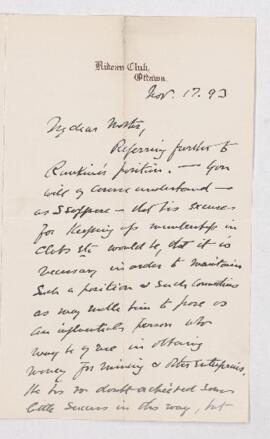 Rideau Club,
Ottawa.
Nov. 17. 93
My dear
Referring further to
Rankin's position. — You
will of course understand —
as I suppose — that his excuse
for keeping up membership in
Clubs etc would be, that it is
necessary in order to maintain
such a position & such connections
as may enable him to pose as
an influential person who
may be of use in obtaining
money for mining & other enterprises.
He has no doubt achieved some
little success in this way, but